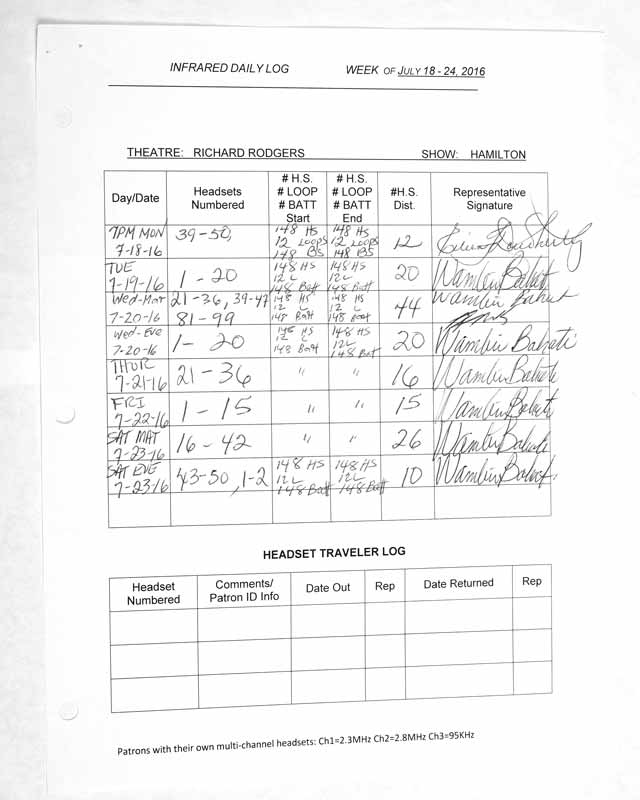 INFRARED DAILY LOG WEEK OF JULY 18 - 24, 2016
THEATRE: RICHARD RODGERS SHOW: HAMILTON
Day/Date
Headsets
Numbered
# H.S.
# LOOP
# BATT
Start
# H.S.
# LOOP
# BATT
End
#H.S.
Dist.
Representative
Signature
7PM MON
7-18-16
39-50,
148 HS
12 Loops
148
148 HS
12 Loops
148
12
TUE
7-19-16
1 - 20
148 HS
12 L
148 Batt
148 HS
12 L
148 Batt
20
Wed-Mat
7-20-16
21-36, 39-47
81-99
148 HS
12 L
148 Batt
148 HS
12 L
148 Batt
44
Wed-Eve
7-20-16
1- 20
148 HS
12 L
148 Batt
148 HS
12L
148 Bat
20
THUR
7-21-16
21-36
"
"
16
FRI
7-22-16
1-15
"
"
15
SAT MAT
7-23-16
16-42
"
"
26
SAT EVE
7-23-16
43-50, 1-2
148 HS
12L
148 Batt
148 HS
12L
148 Batt
10
HEADSET TRAVELER LOG
Headset
Numbered
Comments/
Patron ID Info
Date Out
Rep
Date Returned
Rep
Patrons with their own multi-channel headsets: Ch1=2.3MHz Ch2=2.8MHz Ch3=95KHz